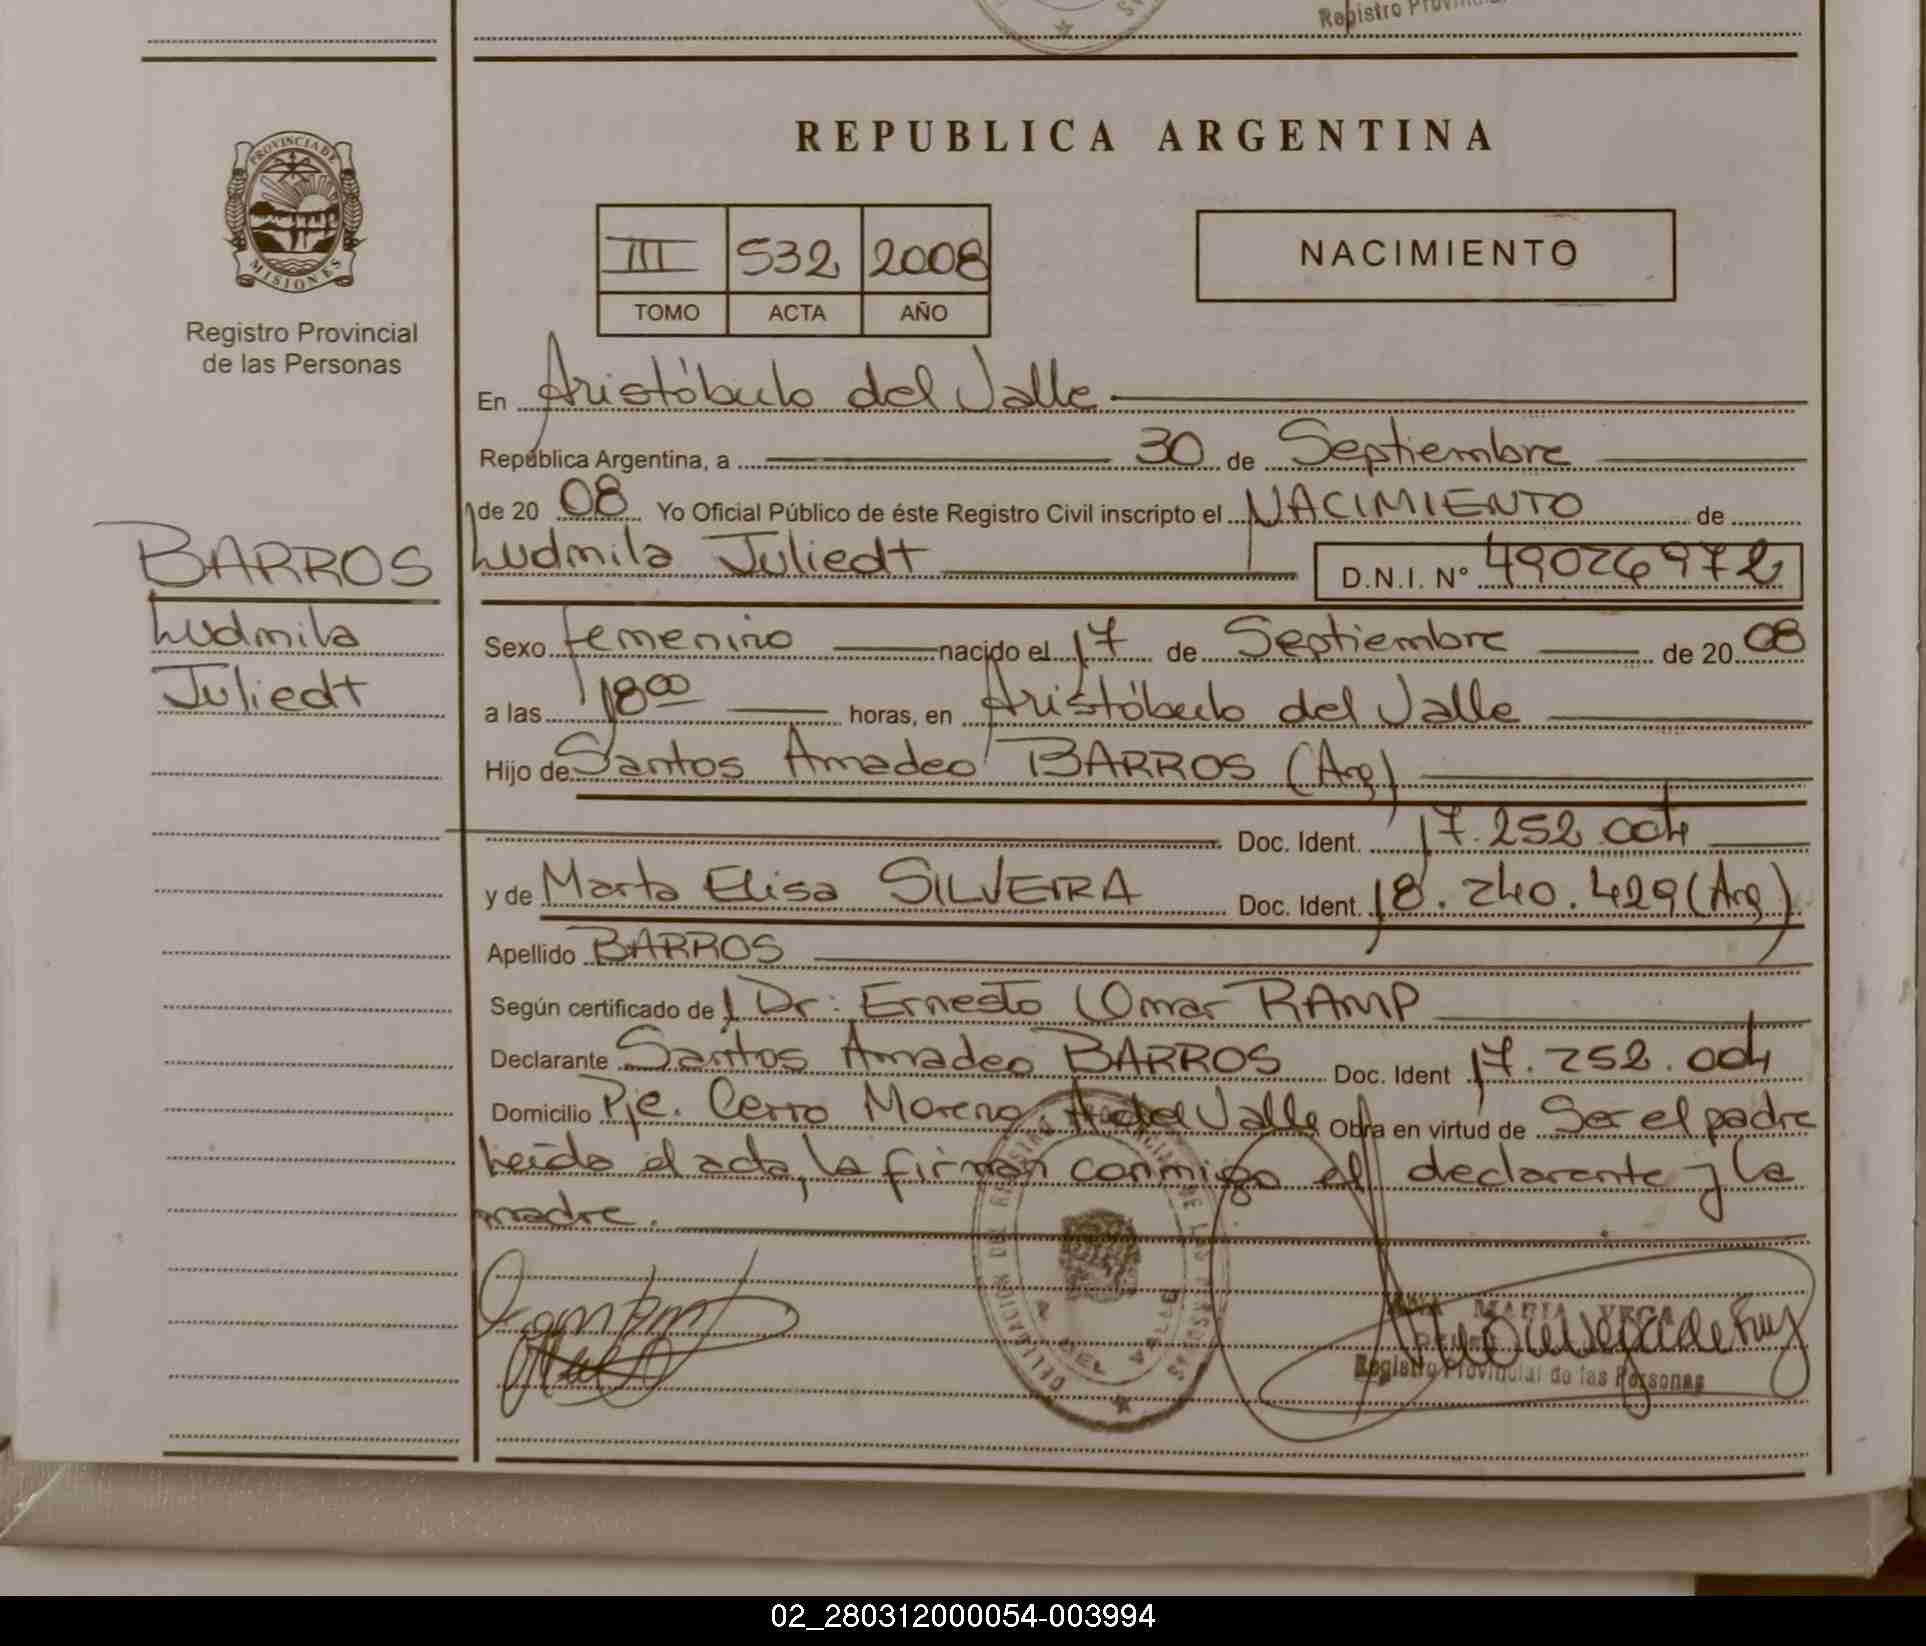 Registro Provincial
REPUBLICA ARGENTINA
PROVINCIA DE
MISIONES
Registro Provincial
de las Personas
III 532 2008
TOMO ACTA AÑO
NACIMIENTO
En Aristóbulo del Valle
República Argentina, a 30 de Septiembre
de 20 08 Yo Oficial Público de éste Registro Civil inscripto el NACIMIENTO de
BARROS
Ludmila
Juliedt
Ludmila Juliedt D.N.I. Nº 49026972
Sexo femenino nacido el 17 de Septiembre de 20 08
a las 18 00 horas, en Aristóbulo del Valle
Hijo de Santos Amadeo BARROS (Arg)
Doc. Ident. 17.252.004
y de Marta Elisa SILVEIRA Doc. Ident. 18.240.429 (Arg)
Apellido BARROS
Según certificado de Dr: Ernesto Omar RAMP
Declarante Santos Amadeo BARROS Doc. Ident 17.252.004
Domicilio Pje. Cerro Moreno. A. del Valle Obra en virtud de Ser el padre
Leída el acta, la firman conmigo el declarante y la
madre.
MARIA VEGA
Registro Provincial de las Personas
02_280312000054-003994